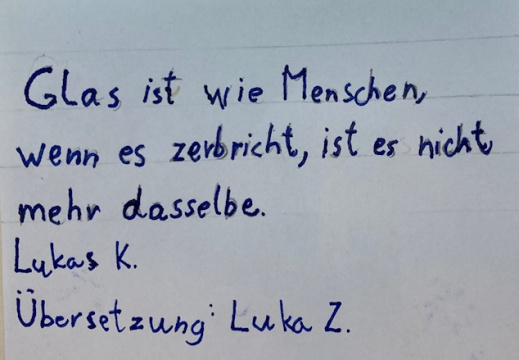 Glas ist wie Menschen,
wenn es zerbricht, ist es nicht
mehr dasselbe.
Lukas K.
Übersetzung: Luka Z.